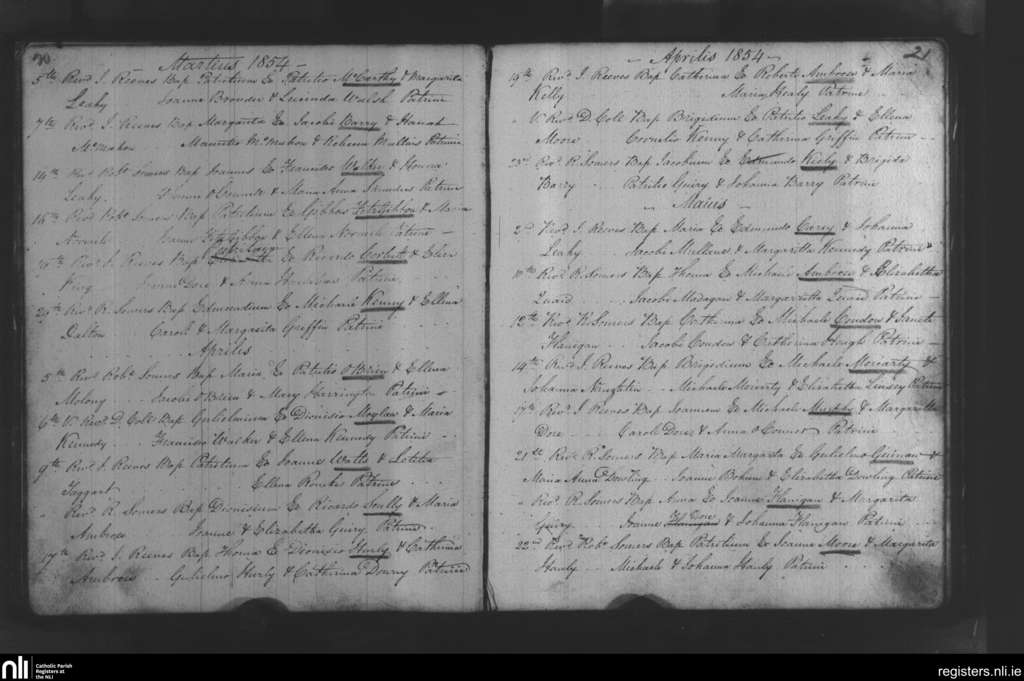 20
Martius 1854 -
5th Revd. J. Reeves Bap Patritium Ex Patritio McCarthy & Margarita
Leahy Joanne Browder & Lucinda Walsh Patrini
7th Revd. J. Reeves Bap Margarita Ex Jacobi Barry & Hanah
McMahon Mauritio McMahon & Mullins Patrini
14th Revd. Robt. Somers Bap Joannes Ex Francisco & Honna
Leahy & Maria Anna Saunders Patrini
16th Revd. Robt. Somers Bap Patritium Ex Gibbon Fitzgibbon & Maria
Fitzgibbon & Ellen Patrini -
Revd. J. Reeves Bap Ex Ricardo & Eliza
King & Anna Patrini
29th Revd. R. Somers Bap Edmundum Ex Michaele Kenny & Ellina
Dalton Caroli & Margarita Griffin Patrini
Aprilis
5th Revd. Robt. Somers Bap Maria Ex Patritio O'Brien & Ellena
Molony Jacobi O'Brien & Mary Harrington Patrini
6th V. Revd. D. Colt Bap Gulielmum Ex Dionisio Moylan & Maria
Kennedy Francisco & Ellena Kennedy Patrini -
9th Revd. J. Reeves Bap Patritium Ex Joanne Watts & Letitia
Taggart Ellena Patrini
" Revd. R. Somers Bap Dionisium Ex Ricardo Scully & Maria
Ambrose Joanne & Elizabetha Guiry Patrini
17th Revd. J. Reeves Bap Thoma Ex Dionisio Hurly & Catherina
Ambrose Gulielmo Hurly & Catherina Downy Patrini
21
- Aprilis 1854 -
19th Revd. J. Reeves Bap Catherina Ex Roberto Ambrose & Maria
Kelly Maria Healy Patrini
" V. Revd. D. Colt Bap Brigidium Ex Patritio Leahy & Ellena
Moore Cornelio Kenny & Catherina Griffin Patrini
23d Revd. R. Somers Bap Jacobum Ex Edmundo Kiely & Brigida
Barry Patritio Guiry & Johanna Barry Patrini
- Maius -
2d Revd. J. Reeves Bap Maria Ex Edmundo Carey & Johanna
Leahy Jacobi Mullane & Margaretta Kennedy Patrini
10th Revd. R. Somers Bap Thoma Ex Michaele Ambrose & Elizabetha
Quaid Jacobi Madigan & Margaretta Quaid Patrini -
12th Revd. R. Somers Bap Catherina Ex Michaele Condon &
Flanigan Jacobi Condon & Catherina Hough Patrini -
14th Revd. J. Reeves Bap Brigidium Ex Michaele Moriarty &
Johanna Naughtin Michaele Moriarty & Elizabetha Lindsey Patrini
17th Revd. J. Reeves Bap Joannem Ex Michaele Murphy & Margaretta
Dore Caroli Dore & Anna O'Connor Patrini
21st Revd. R. Somers Bap Maria Margarita Ex Gulielmo Guinan &
Maria Anna Dowling Joanne & Elizabetha Dowling Patrini
" Revd. R. Somers Bap Anna Ex Joanne Flanigan & Margarita
Guiry Joanne Flanigan Dore & Johanna Flanigan Patrini
22d Revd. Robt. Somers Bap Patritium Ex Joanne Moore & Margarita
Hanly Michaele & Johanna Hanly Patrini
nli Catholic Parish
Registers at
the NLI
registers.nli.ie